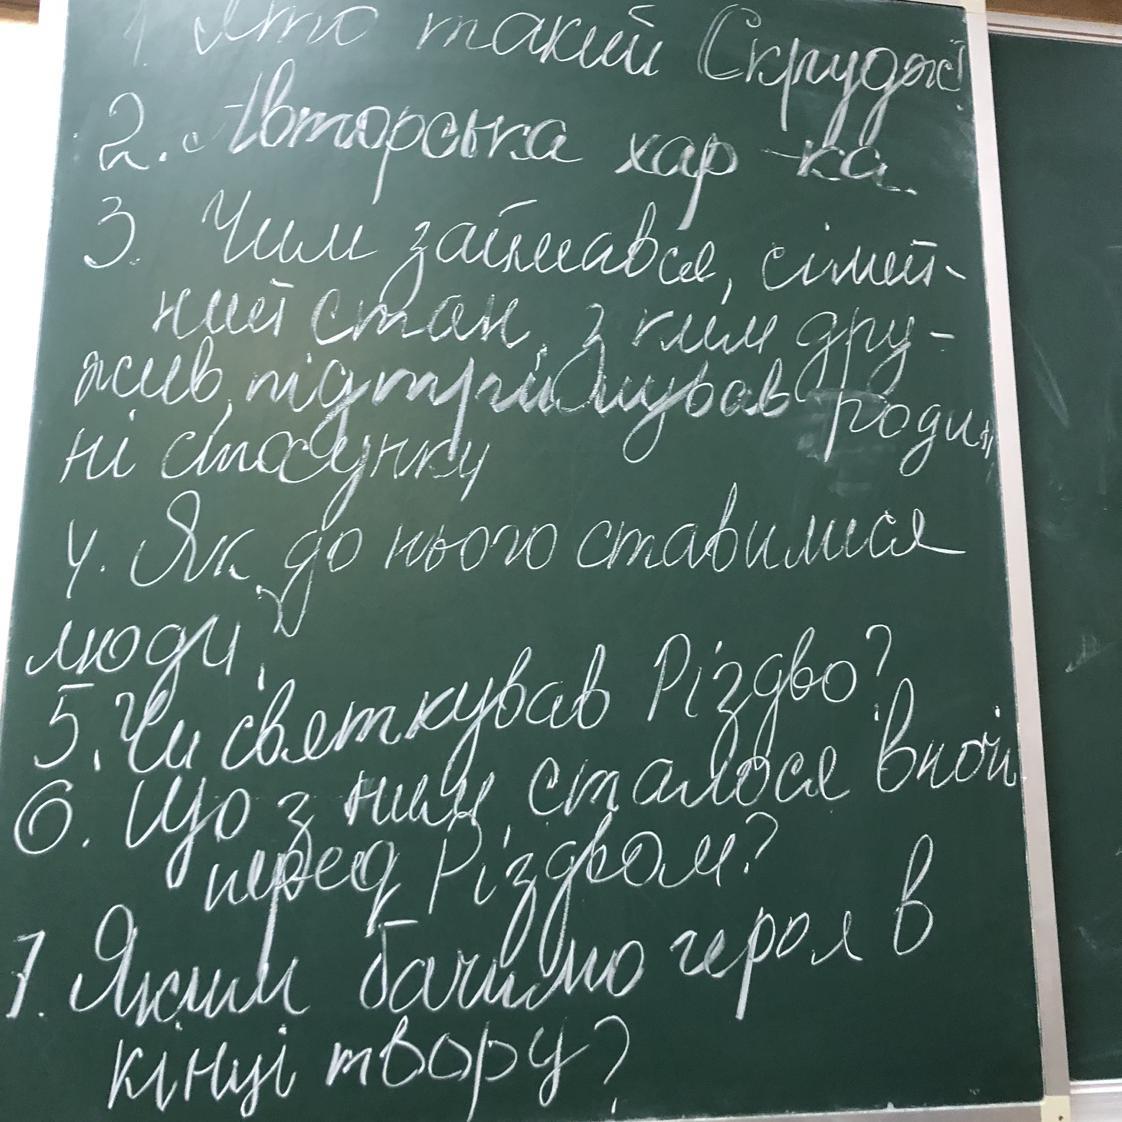 1. Хто такий Скрудж?
2. Авторська хар-ка.
3. Чим займався, сімей-
ний стан, з ким дру-
жив, підтримував родин
ні стосунку
4. Як до нього ставилися
люди?
5. Чи святкував Різдво?
6. Що з ним сталося вночі
перед Різдвом?
7. Яким бачимо героя в
кінці твору?